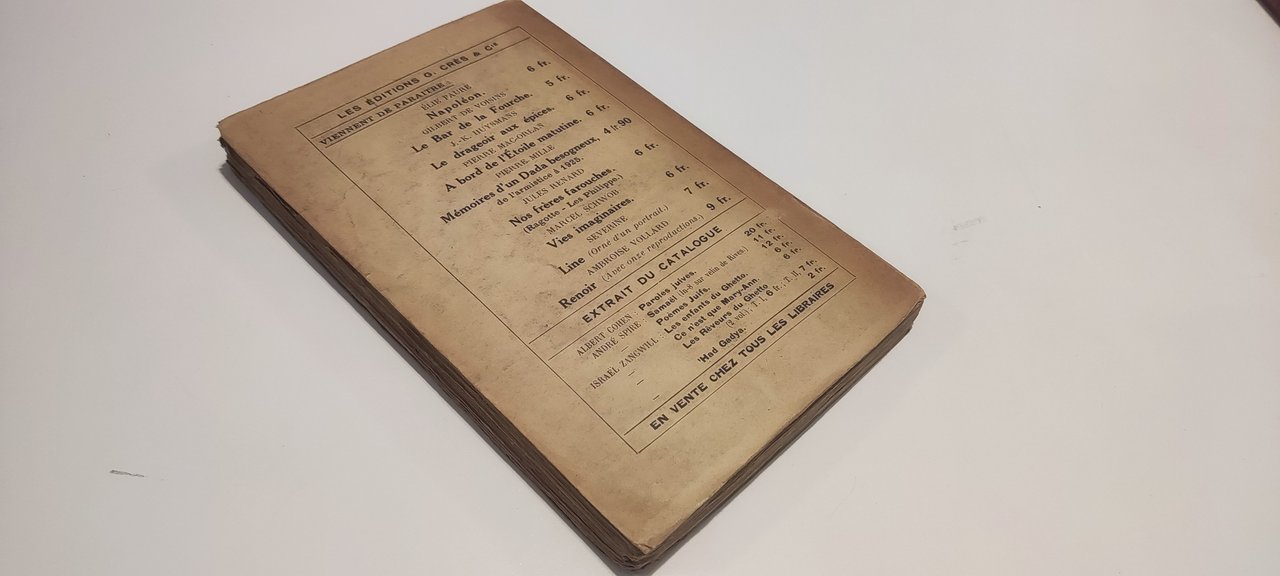 LES ÉDITIONS G. CRÈS & Cie
VIENNENT DE PARAITRE :
ÉLIE FAURE
Napoléon. 6 fr.
GILBERT DE VOISINS
Le Bar de la Fourche. 5 fr.
J.-K. HUYSMANS
Le drageoir aux épices. 6 fr.
PIERRE MAC-ORLAN
A bord de l'Étoile matutine. 6 fr.
PIERRE MILLE
Mémoires d'un Dada besogneux, 4 fr 90
de l'armistice à 1925.
JULES RENARD
Nos frères farouches. 6 fr.
(Ragotte - Les Philippe.)
MARCEL SCHWOB
Vies imaginaires. 6 fr.
SEVERINE
Line (Orné d'un portrait.) 7 fr.
AMBROISE VOLLARD
Renoir (Avec onze reproductions.) 9 fr.
EXTRAIT DU CATALOGUE
ALBERT COHEN Paroles juives. 20 fr.
ANDRÉ SPIRE Samaël (in-8 sur velin de Rives.) 11 fr.
— Poèmes Juifs. 12 fr.
ISRAËL ZANGWILL : Les enfants du Ghetto. 6 fr.
— Ce n'est que Mary-Ann. 6 fr.
— Les Rêveurs du Ghetto
(2 vol.) : T. I, 6 fr. ; T. II, 7 fr.
— 'Had Gadya. 2 fr.
EN VENTE CHEZ TOUS LES LIBRAIRES